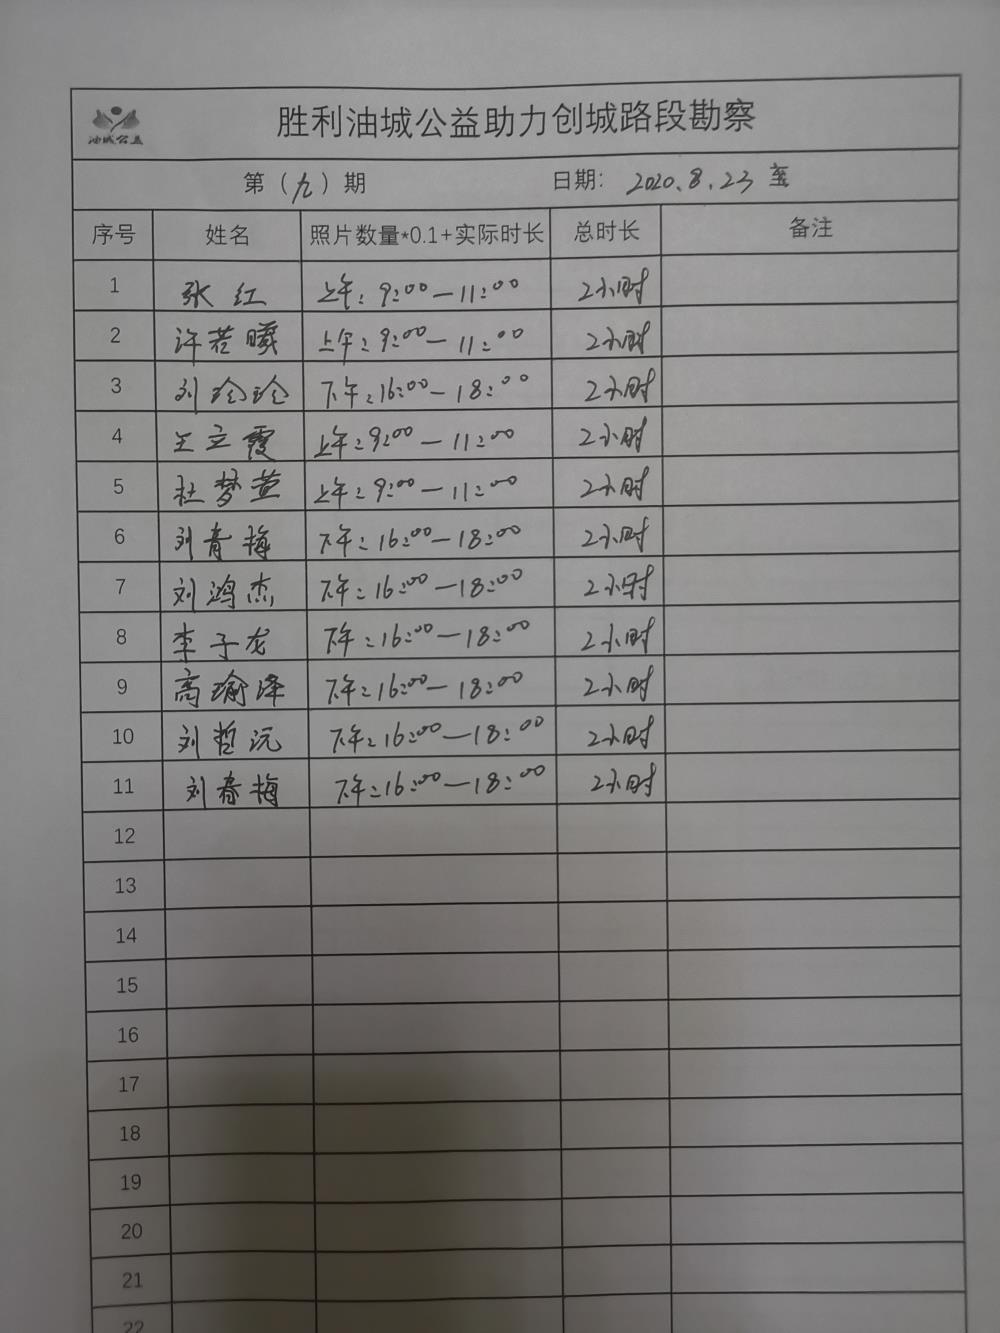 油城公益
胜利油城公益助力创城路段勘察
第（九）期 日期：2020.8.23
序号 姓名 照片数量*0.1+实际时长 总时长 备注
1 张红 上午：9:00—11:00 2小时
2 许若曦 上午：9:00—11:00 2小时
3 刘珍珍 下午：16:00—18:00 2小时
4 王立霞 上午：9:00—11:00 2小时
5 杜梦萱 上午：9:00—11:00 2小时
6 刘青梅 下午：16:00—18:00 2小时
7 刘鸿杰 下午：16:00—18:00 2小时
8 李子龙 下午：16:00—18:00 2小时
9 高瑜泽 下午：16:00—18:00 2小时
10 刘哲沅 下午：16:00—18:00 2小时
11 刘春梅 下午：16:00—18:00 2小时
12
13
14
15
16
17
18
19
20
21
22